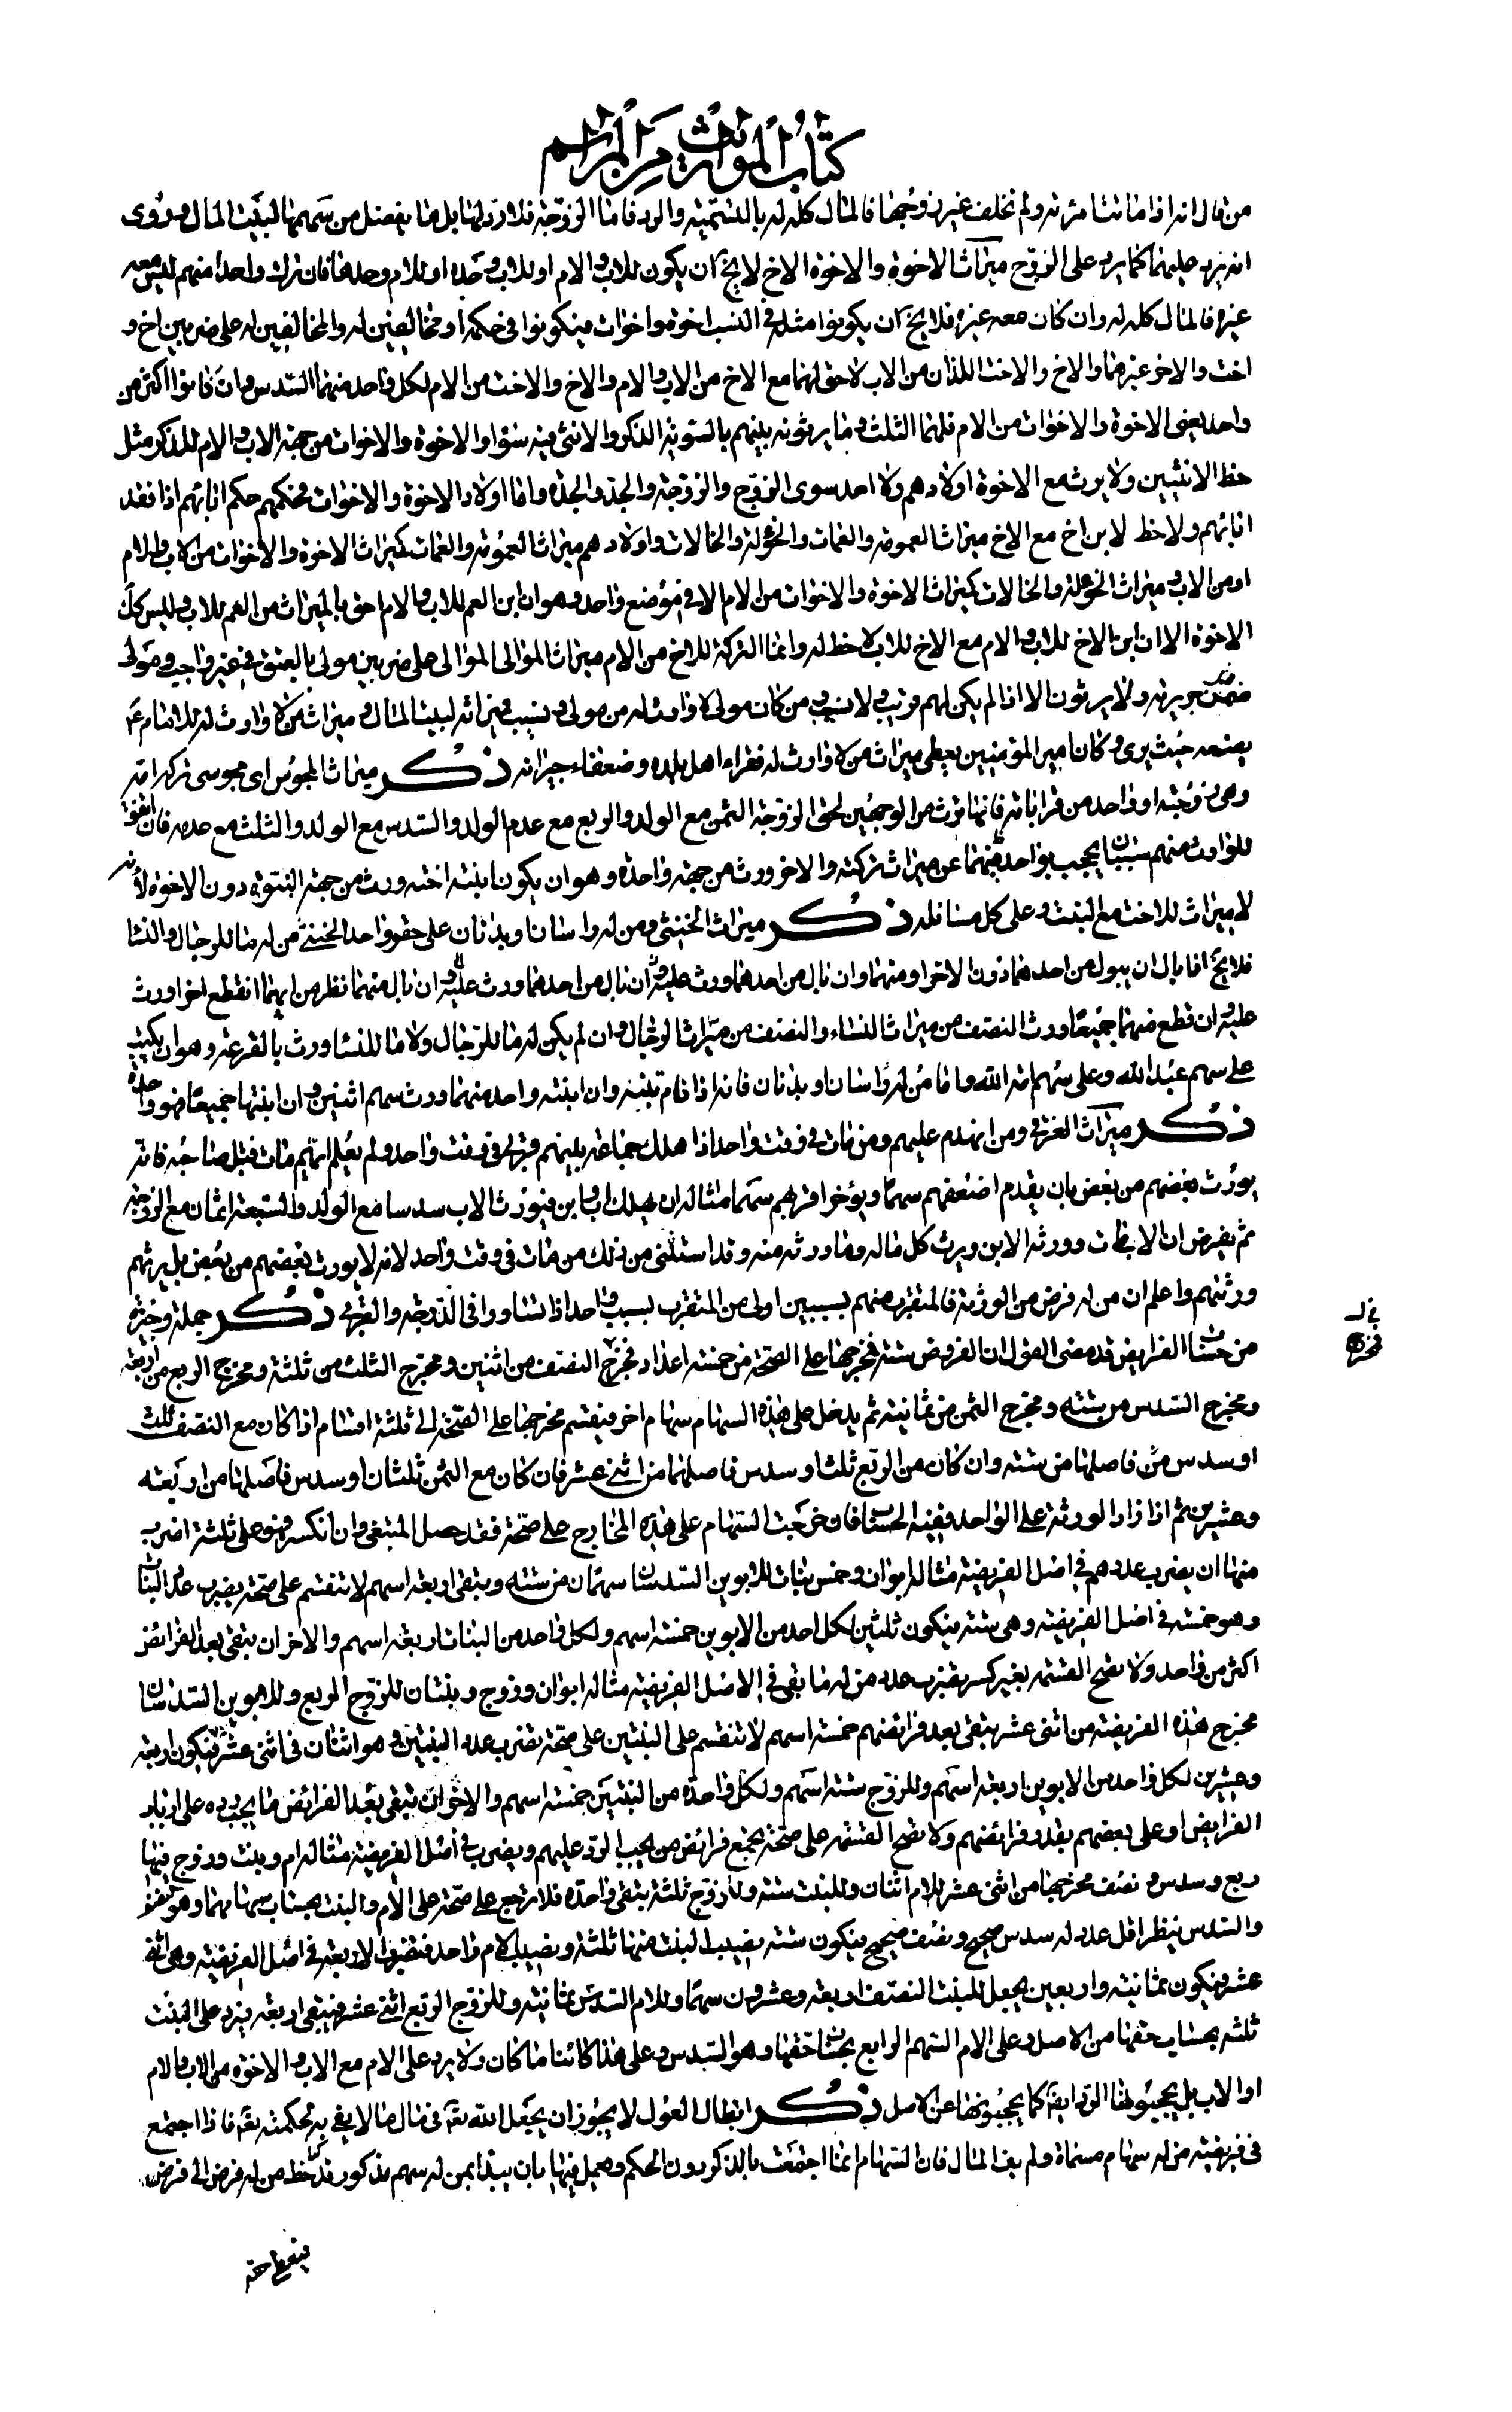 كتاب المواريث من المراسم
من قال انه اذا ماتت امرأة ولم تخلف غير زوجها فالمال كله له بالتسمية والرد فاما الزوجة فلا رد لها بل ما يفضل من سهمها لبيت المال وروى
انه يرد عليها كما يرد على الزوج ميراث الاخوة والاخوة الاخ لا يخ ان يكون للاب والام او للاب وحده او للام وحدها فان ترك واحدا منهم ليس معه
غيره فالمال كله له وان كان معه غيره فلا يخ ان يكونوا مثله في النسب اخوة واخوات فيكونوا في حكمه او مخالفين له والمخالفين له على ضربين اخ و
اخت والاخر غيرهما والاخ والاخت اللذان من الاب لاحق لهما مع الاخ من الاب والام والاخ والاخت من الام لكل واحد منهما السدس وان كانوا اكثر من
واحد يعنى الاخوة والاخوات من الام فلهما الثلث وما يرثونه بينهم بالسوية الذكر والانثى فيه سواء والاخوة والاخوات من جهة الاب والام للذكر مثل
حظ الانثيين ولا يرث مع الاخوة اولادهم ولا احد سوى الزوج والزوجة والجد والجدة واما اولاد الاخوة والاخوات فحكمهم حكم ابائهم اذا فقد
ابائهم ولاحظ لابن اخ مع الاخ ميراث العمومة والعمات والخؤلة والخالات واولادهم ميراث العمومة والعمات كميراث الاخوة والاخوات من الاب والام
او من الاب وميراث الخولة والخالات كميراث الاخوة والاخوات من الام الا في موضع واحد وهو ان ابن العم للاب والام احق بالميراث من العم للاب وليس كك
الاخوة الا ان ابن الاخ للاب والام مع الاخ للاب لاحظ له وانما التركة للاخ من الام ميراث الموالى الموالى على ضربين مولى بالعتق في غير واجب ومولى
ضمن جريرته ولا يرثون الا اذا لم يكن لهم قريب ولا نسيب ومن كان مولى لا وارث له من مولى ونسيب فميراثه لبيت المال وميراث من لا وارث له للامام ع
يصنعه حيث يرى وكان امير المؤمنين يعطى ميراث من لا وارث له فقراء اهل بلده وضعفاء جيرانه ذكر ميراث المجوس اى مجوسى ترك امه
وهى زوجته او واحد من قراباته فانها تورث من الوجهين لحق الزوجة الثمن مع الولد والربع مع عدم الولد والسدس مع الولد والثلث مع عدمه فان اتفق
للوارث منهم سببان يحجب بواحد منهما عن ميراث تركته والاخر ورث من جهة واحدة وهو ان يكون ابنته اخته ورث من جهة البنتوة دون الاخوة لانه
لا ميراث للاخت مع البنت وعلى كل مسائله ذكر ميراث الخنثى ومن له راسان وبدنان على حقو واحد الخنثى من له ما للرجال والنسا
فلا يخ اما بال ان يبول من احدهما دون الاخر او منهما وان بال من احدهما ورث عليه وان بال من احدهما ورث عليه وان بال منهما نظر من ايهما انقطع اخرا ورث
عليه وان قطع منهما جميعا ورث النصف من ميراث النساء والنصف من ميراث الرجال وان لم يكن له ما للرجال ولا ما للنسا ورث بالقرعة وهو ان يكتب
على سهم عبد الله وعلى سهم امة الله واما من له راسان او بدنان فانه اذا نام تبنه وان انبته واحد منهما ورث سهم اثنين وان انبتها جميعا فهو واحد
ذكر ميراث الغرقى ومن انهدم عليهم ومن مات في وقت واحد اذا هلك جماعة بينهم قربى في وقت واحد ولم يعلم ايهم مات قبل صاحبه فانه
يورث بعضهم من بعض بان يقدم اضعفهم سهما ويؤخر اوفرهم سهما مثاله ان يهلك اب وابن فيورث الاب سدسا مع الولد والسبعة اثمان مع الزوجة
ثم يفرض ان الاب مات وورثه الابن ويرث كل ماله وما ورثه منه وقد استثنى من ذلك من مات في وقت واحد لانه لا يورث بعضهم من بعض بل يرثهم
ورثتهم واعلم ان من له فرض من الورثة فالمتقرب منهم بسببين اولى من المتقرب بسبب واحد اذا تساووا في الدرجة والقربى ذكر جملة وجيزة
من حساب الفرايض قد مضى القول ان الفروض ستة فمخرجها على الصحة من خمسة اعداد فمخرج النصف من اثنين ومخرج الثلث من ثلثة ومخرج الربع من اربعة
ومخرج السدس من ستة ومخرج الثمن من ثمانية ثم يدخل على هذه السهام سهام اخر فيقسم مخرجها على الصحة الى ثلثة اقسام اذا كان مع النصف ثلث
او سدس من فاصلها من ستة وان كان من الربع ثلث او سدس فاصلهما من اثنى عشر فان كان مع الثمن ثلثان او سدس فاصلها من اربعة
وعشرين ثم اذا زاد الورثة على الواحد ففيه الحساب فان خرجت السهام على هذه المخارج على صحة فقد حصل المبتغى وان انكسر فهو على ثلثة اضرب
منها ان يضرب عددهم في اصل الفريضة مثاله ابوان وخمس بنات للابوين السدسان سهمان من ستة ويبقى اربعة اسهم لا تنقسم على صحة يضرب عدد البنات
وهو خمسة في اصل الفريضة وهى ستة فيكون ثلثين لكل احد من الابوين خمسة اسهم ولكل واحد من البنات اربعة اسهم والاخر ان يبقى بعد الفرائض
اكثر من واحد ولا تصح القسمة بغير كسر يضرب عدد من له ما بقى في الاصل الفريضة مثاله ابوان وزوج وبنتان للزوج الربع وللابوين السدسان
مخرج هذه الفريضة من اثنى عشر يبقى بعد فرائضهم خمسة اسهم لا تنقسم على البنتين على صحة تضرب عدد البنتين وهو اثنان في اثنى عشر فيكون اربعة
وعشرين لكل واحد من الابوين اربعة اسهم وللزوج ستة اسهم ولكل واحدة من البنتين خمسة اسهم والاخر ان تبقى بعد الفرائض ما يجب رده على ارباب
الفرايض او على بعضهم بقدر فرائضهم ولا تصح القسمة على صحة يجمع فرائض من يجب الرد عليهم ويضرب في اصل الفريضة مثاله ام وبنت وزوج فيها
ربع وسدس ونصف مخرجها من اثنى عشر للام اثنان وللبنت ستة وللزوج ثلثة يبقى واحدة فلا ترجع على صحة على الام والبنت بحساب سهامهما وهو النصف
والسدس ينظر اقل عدد له سدس صحيح ونصف صحيح فيكون ستة يصيب البنت منها ثلثة ويصيب الام واحد فتضرب الاربعة في اصل الفريضة وهى اثنى
عشر فيكون ثمانية واربعين يجعل للبنت النصف اربعة وعشرون سهما وللام السدس ثمانية وللزوج الربع اثنى عشر فيبقى اربعة يرد على البنت
ثلثه بحساب حقها من الاصل وعلى الام السهم الرابع بحساب حقها وهو السدس وعلى هذا كائنا ما كان ولا يرد على الام مع الاب والاخوة من الاب والام
او الاب بل يحجبونها الرد ايضا كما يحجبونها عن الاصل ذكر ابطال العول لا يجوز ان يجعل الله تعالى في مال ما لا يفى به لحكمته تعالى فاذا اجتمع
في فريضة من له سهام مسماة ولم يف المال فان السهام انما اجتمعت بالذكر دون الحكم وعمل فيها بان يبدا بمن له سهم مذكور قد حط من له فرض الى فرض